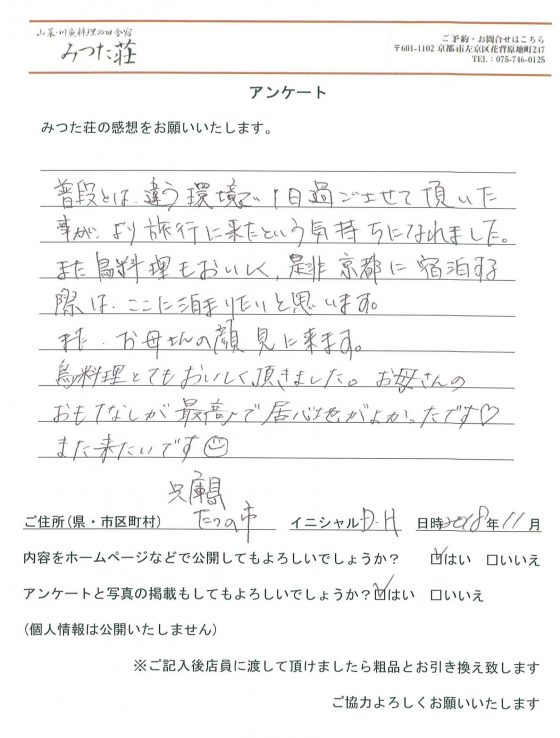 山菜・川魚料理の田舎宿
みつた荘
ご予約・お問合せはこちら
〒601-1102 京都市左京区花背原地町247
TEL：075-746-0125
アンケート
みつた荘の感想をお願いいたします。
普段とは、違う環境で、1日過ごさせて頂いた
事が、より旅行に来たという気持ちになれました。
また鳥料理もおいしく、是非京都に宿泊する
際は、ここに泊まりたいと思います。
また、お母さんの顔見に来ます。
鳥料理とてもおいしく頂きました。お母さんの
おもてなしが最高で居心地がよかったです♡
また来たいです☺
兵庫県
ご住所（県・市区町村） たつの市 イニシャル D.H 日時 2018年11月
内容をホームページなどで公開してもよろしいでしょうか？ ☑はい □いいえ
アンケートと写真の掲載もしてもよろしいでしょうか？☑はい □いいえ
(個人情報は公開いたしません)
※ご記入後店員に渡して頂けましたら粗品とお引き換え致します
ご協力よろしくお願いいたします